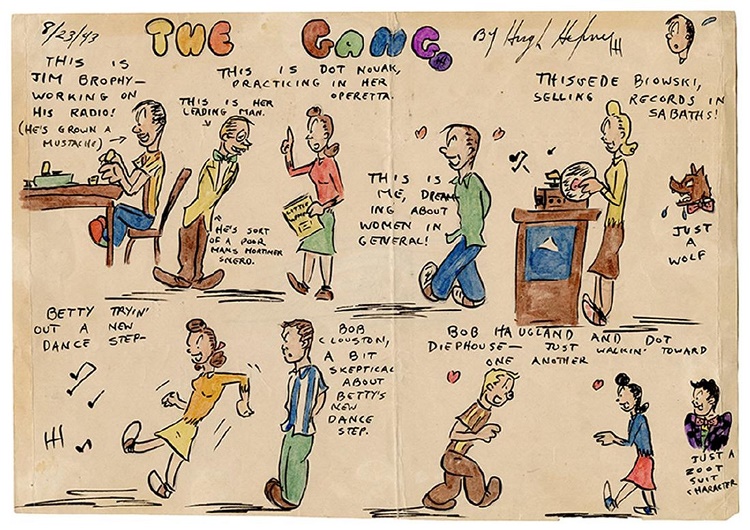 8/23/43
THE GANG
By Hugh Hefner HH
THIS IS
JIM BROPHY—
WORKING ON
HIS RADIO!
(HE'S GROWN A
MUSTACHE)
THIS IS DOT NOVAK,
PRACTICING IN HER
OPERETTA.
THIS IS HER
LEADING MAN.
HE'S SORT
OF A POOR
MANS MORTIMER
SNERD.
LITTLE
THIS IS
ME, DREAM-
ING ABOUT
WOMEN IN
GENERAL!
THIS EDE BIOWSKI,
SELLING RECORDS IN
SABATHS!
JUST
A
WOLF
BETTY TRYIN'
OUT A NEW
DANCE STEP—
HH
BOB
CLOUSTON,
A BIT
SKEPTICAL
ABOUT
BETTY'S
NEW
DANCE
STEP.
BOB HAUGLAND AND DOT
DIEPHOUSE— JUST WALKIN' TOWARD
ONE ANOTHER
JUST A
ZOOT
SUIT
CHARACTER